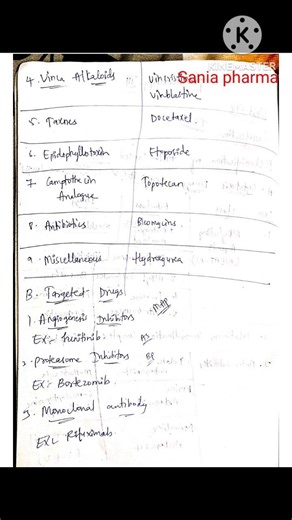 K
KINEMASTER
Sania pharma
4. Vinca Alkaloids
Vinblastine
5. Taxnes Docetaxel.
6. Epidophyllotoxin Etoposide
7. Camptothecin Topotecan
Analogue
8. Antibiotics
9. Miscellaneous Hydragurea
B. Targeted Drugs
1. Angiogenesis Inhibitors
Ex:- Sunitinib
2. proteasome Inhibitors
EX:- Bortezomib.
3. Monoclonal antibody
EX:- Rifuximab.